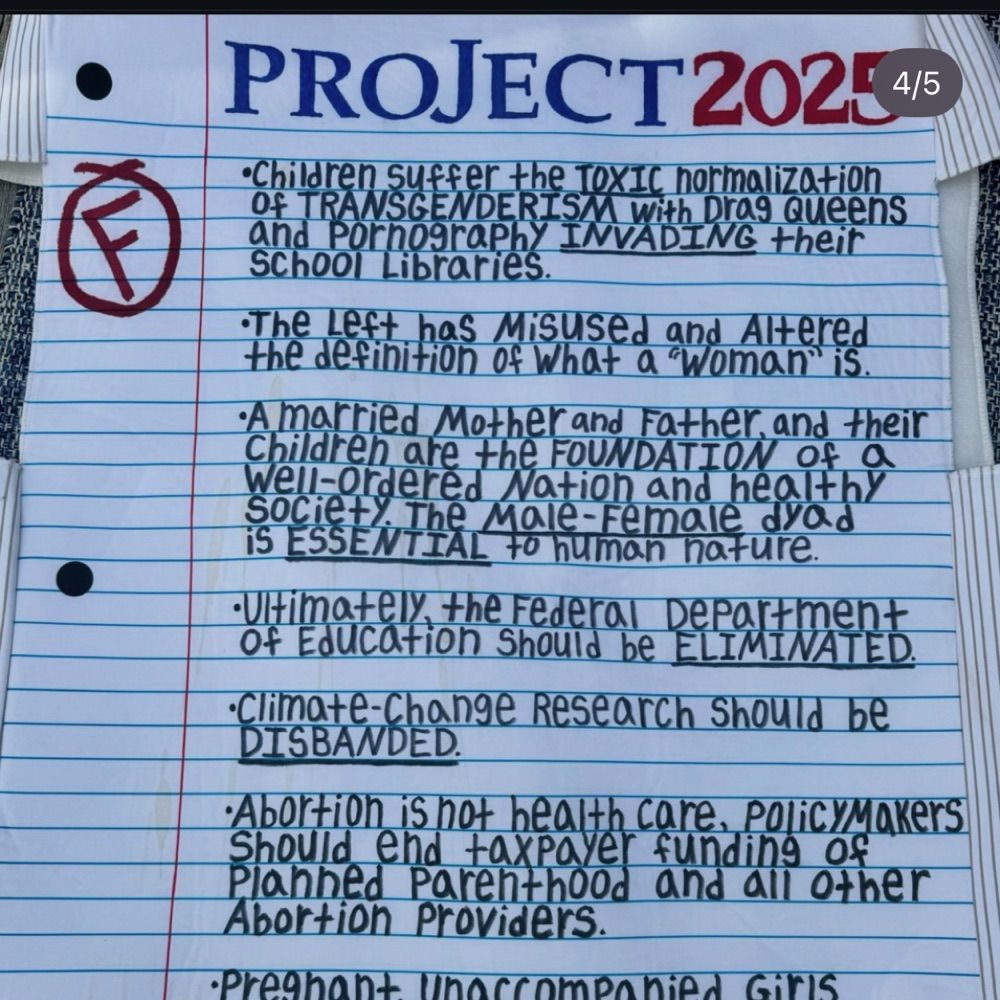 PROJECT 2025
4/5
F
•Children suffer the TOXIC normalization
of TRANSGENDERISM with Drag Queens
and Pornography INVADING their
School Libraries.
•The Left has Misused and Altered
the definition of what a "woman" is.
•A married Mother and Father, and their
Children are the FOUNDATION of a
Well-ordered Nation and healthy
Society. The Male-Female dyad
is ESSENTIAL to human nature.
•Ultimately, the Federal Department
of Education Should be ELIMINATED.
•Climate-Change Research Should be
DISBANDED.
•Abortion is not health care. Policymakers
Should end taxpayer funding of
Planned Parenthood and all other
Abortion Providers.
•Pregnant, Unaccompanied Girls